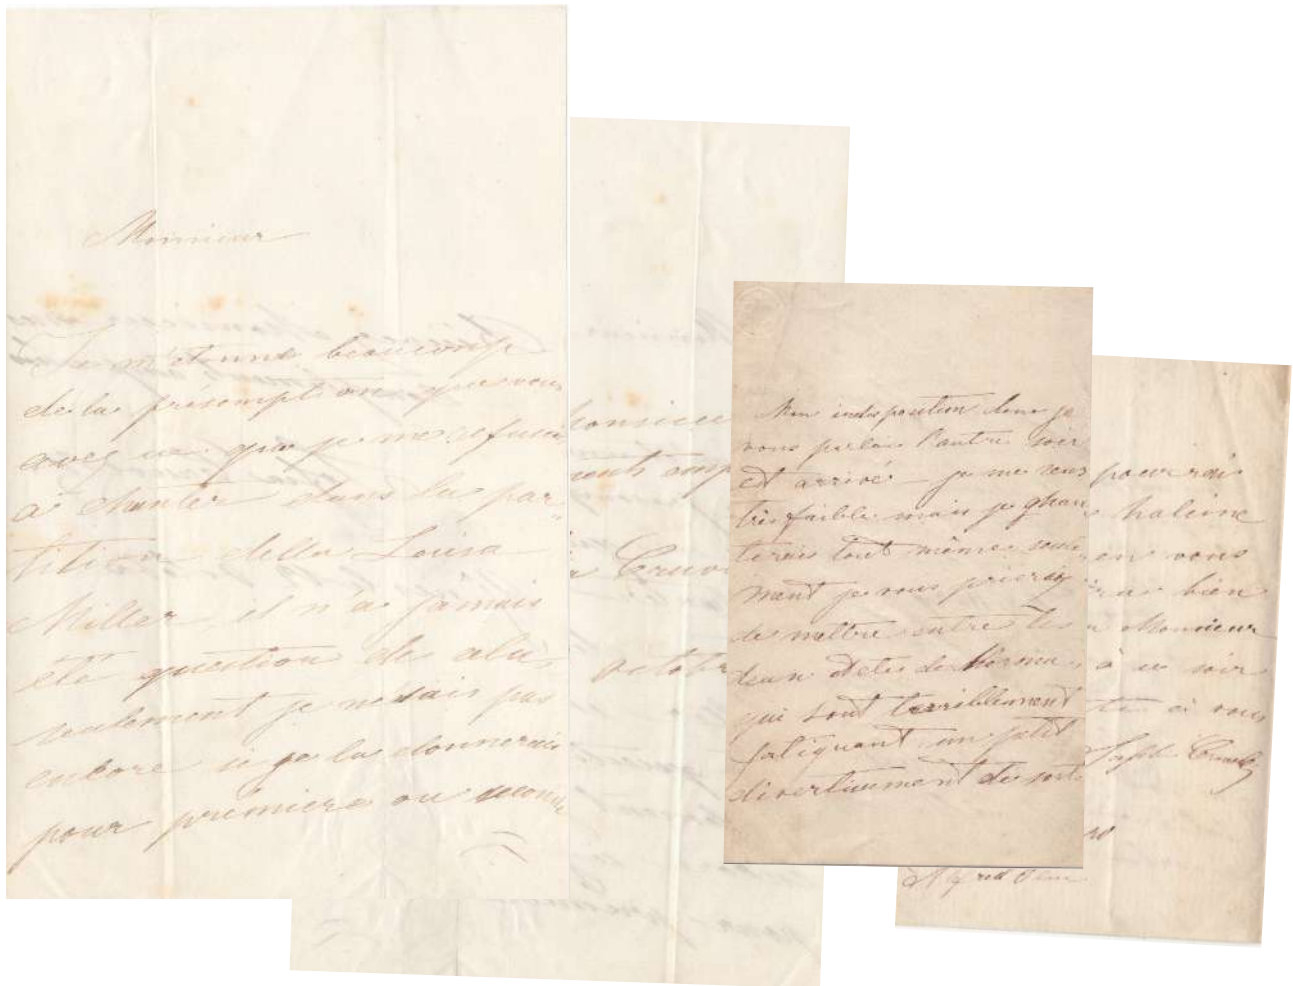 Monsieur
Je m'etonne beaucoup
de la présomption que vous
avez eue que je me refusai
à chanter dans la par=
tition della Louisa
Miller, il n'a jamais
été question de cela
seulement je ne sais pas
encore si je la donnerais
pour première ou second
onsieur
ment emp
Cruve
octob
Mon indisposition dont je
vous parlais l'autre soir
et arrivé je me sens
très faible mais je chan=
terais tout même seule=
ment je vous prierais
de mettre entre les
deux actes de Norma
qui sont terriblement
fatiguant un petit
divertissement de sorte
pourrai
haleine
en vous
bien
Monsieur
à ce soir
à vous
Sophie Cruvelli